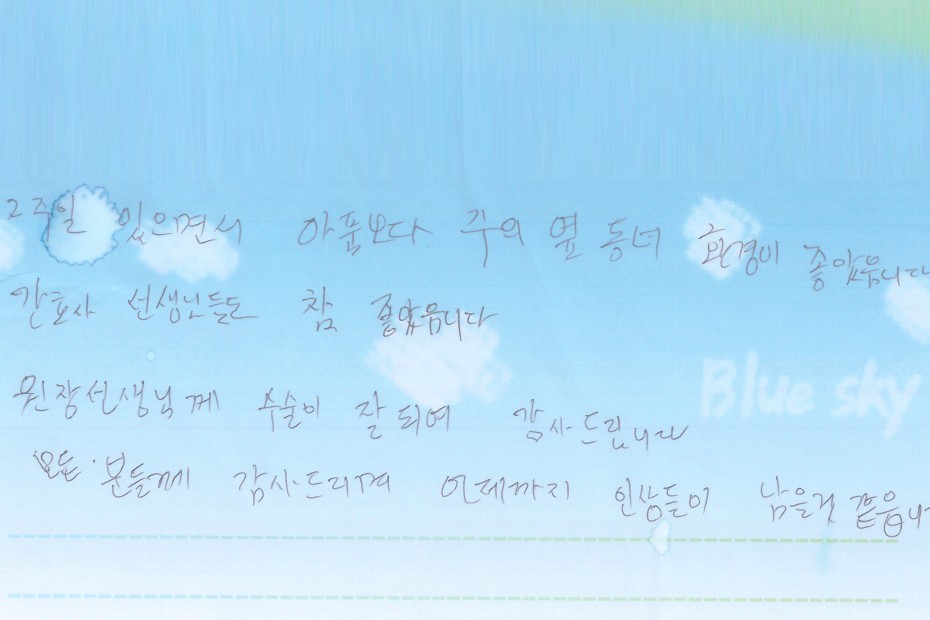 2주일 있으면서 아품보다 주의 옆 동너 환경이 좋았읍니다
간호사 선생님들도 참 좋았읍니다
Blue sky
원장선생님께 수술이 잘 되여 감사드립니다
모든 분들께 감사드리며 언제까지 인상들이 남을것 같읍니